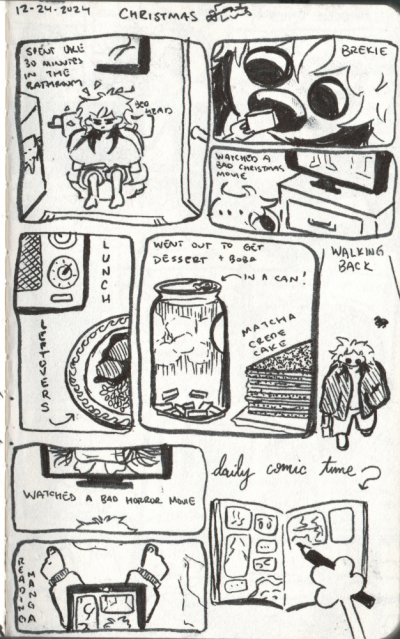 12-24-2024
CHRISTMAS
SPENT LIKE
30 MINUTES
IN THE
BATHROOM
BED
HEAD
BREKIE
WATCHED A
BAD CHRISTMAS
MOVIE
...
LUNCH
LEFTOVERS
WENT OUT TO GET
DESSERT + BOBA
IN A CAN!
MATCHA
CREPE
CAKE
WALKING
BACK
WATCHED A BAD HORROR MOVIE
daily comic time
READING
MANGA